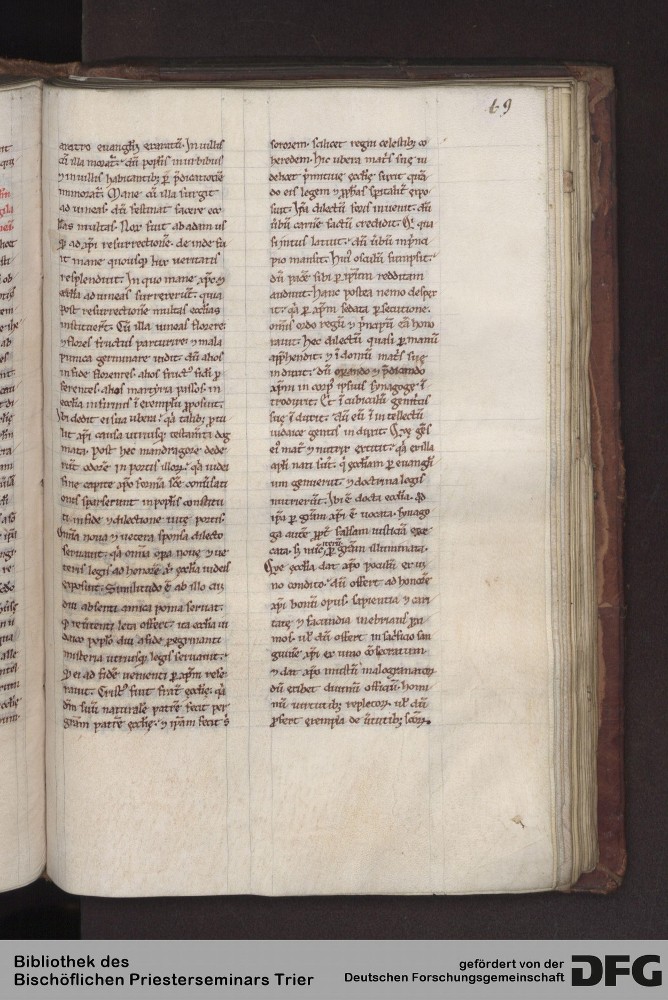 49
aratro euangelii exaratum. In uillis
cum illa moratur. dum populis in urbibus
in uillis habitantibus per predicationem
immoratur. Mane cum illa surgit
ad uineas. dum festinat facere eccle
sias multas. Nox fuit ab adam us
que ad christi resurrectionem. deinde fu
it mane quousque lux ueritatis
resplenduit. In quo mane christus et
ecclesia ad uineas surrexerunt. quia
post resurrectionem multas ecclesias
instituerunt. Cum illa uineas florere
et flores fructus parturire. et mala
punica germinare uidit. dum alios
in fide florentes. alios fructum fidei
ferentes. alios martyria passos. in
ecclesia infirmis in exemplum proposuit.
Ibi dedit ei sua ubera. quia talibus
lit christi causa utriusque testamenti dog
mata. Post hec mandragore dede
runt odorem in portis illorum. quia iudei
sine capite christo
onis sparserunt in populis constitu
ti. in fide et dilectione uite portis.
Omnia noua et uetera sponsa dilecto
seruauit. quia omnia opera noue et ue
teris legis ad honorem christi ecclesia iudeis
exposuit. Similitudo est ab illo cui
diu absenti amica poma seruat.
et redeunti leta offert. ita ecclesia iu
daico populo diu a fide peregrinanti
misteria utriusque legis seruauit.
et ei ad fidem uenienti per christum rese
rauit. Christus fuit frater ecclesie. quia
deum suum naturalem patrem fecit per
gratiam patrem ecclesie. et ipsam fecit
sororem. scilicet regni celestibus co
heredem. Hic ubera matris sue
primitiue ecclesie
do eis legem et prophetas spiritaliter expo
suit. Ipsa dilectum foris inuenit. dum
uerbum carnem factum credidit. Et qui
intus latuit. dum uerbum in princi
pio mansit. Huic osculum sumpsit.
dum pacem sibi per christum redditam
audiuit. Hanc postea nemo despex
it. quia per christum sedata persecutione.
omnis ordo regum et principum eam hono
rauit. Hec dilectum quasi per manum
apprehendit. et in domum matris sue
induxit. dum orando et predicando
christum in corpus ipsius synagoge in
troduxit. Et in cubiculum genitricis
sue introduxit. dum eum in intellectum
iudaice gentis induxit. Que gens
ei mater et nutrix extitit. quia ex illa
apostoli nati sunt. qui ecclesiam per euangeli
um genuerunt et doctrina legis
nutrierunt. Ibi est docta ecclesia. quod
ipsa per gratiam christi est uocata. synago
ga autem propter falsam iusticiam exe
cata. sed nunc iterum per gratiam illuminata.
Que ecclesia dat christo poculum ex ui
no condito. dum offert ad honorem
christi bonum opus. sapientia et cari
tate et facundia inebrians proxi
mos. uel dum offert in sacrificio san
guinem christi ex uino consecratum.
et dat christo mustum malogranatorum
dum exibet diuinum officium. homi
num uirtutibus repletorum. uel dum
profert exempla de uirtutibus sanctorum.
Bibliothek des
Bischöflichen Priesterseminars Trier
gefördert von der
Deutschen Forschungsgemeinschaft
DFG